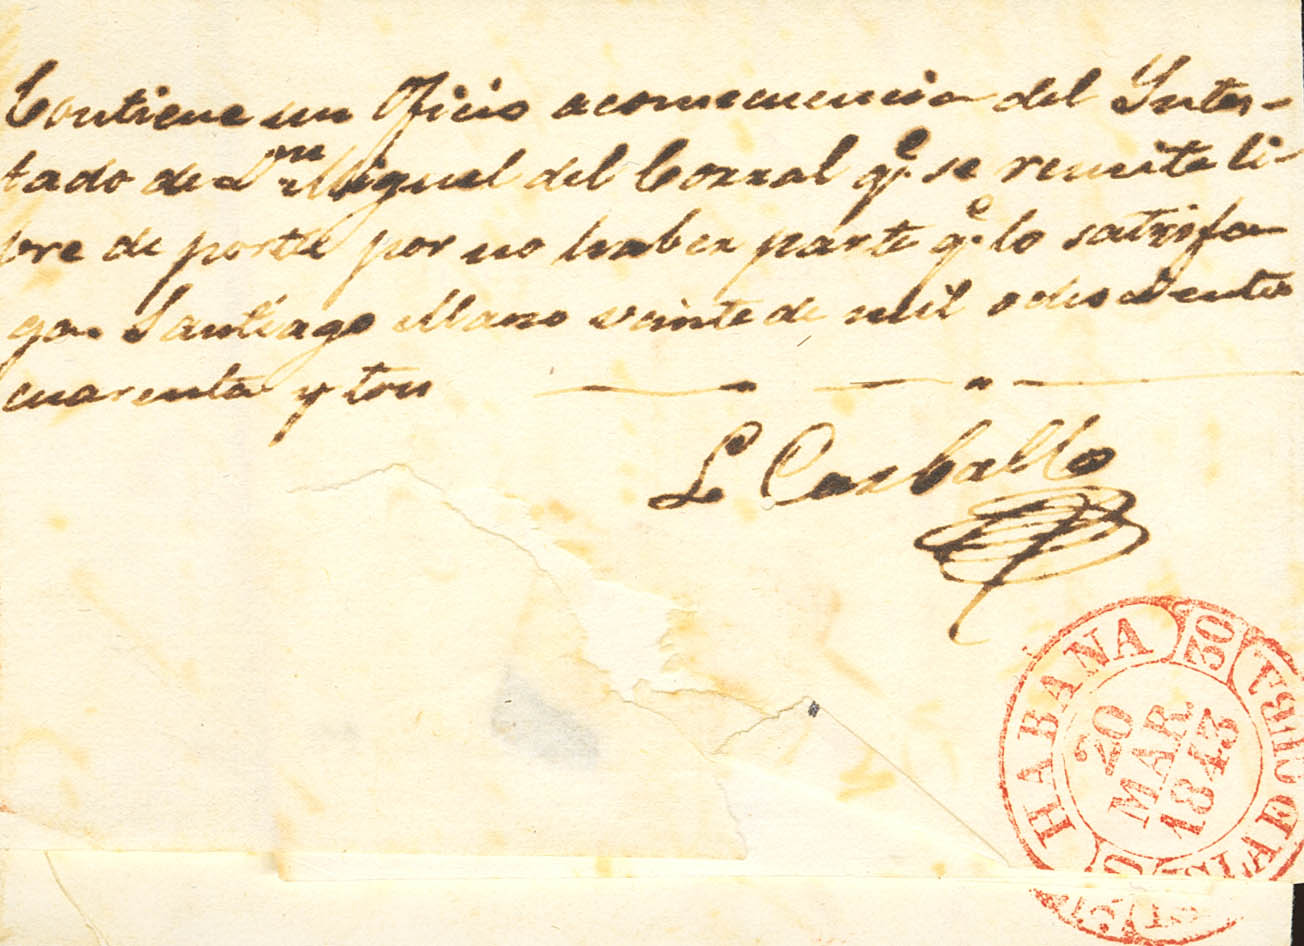 Contiene un Oficio aconsecuencia del Intes-
tado de Dn Miguel del Corral qe se remite li-
bre de porte por no haber parte qe lo satisfa
ga. Santiago Marzo veinte de mil ochocientos
cuarenta y tres
L Carballo
HABANA
30
ISLA DE CUBA
20
MAR.
1843